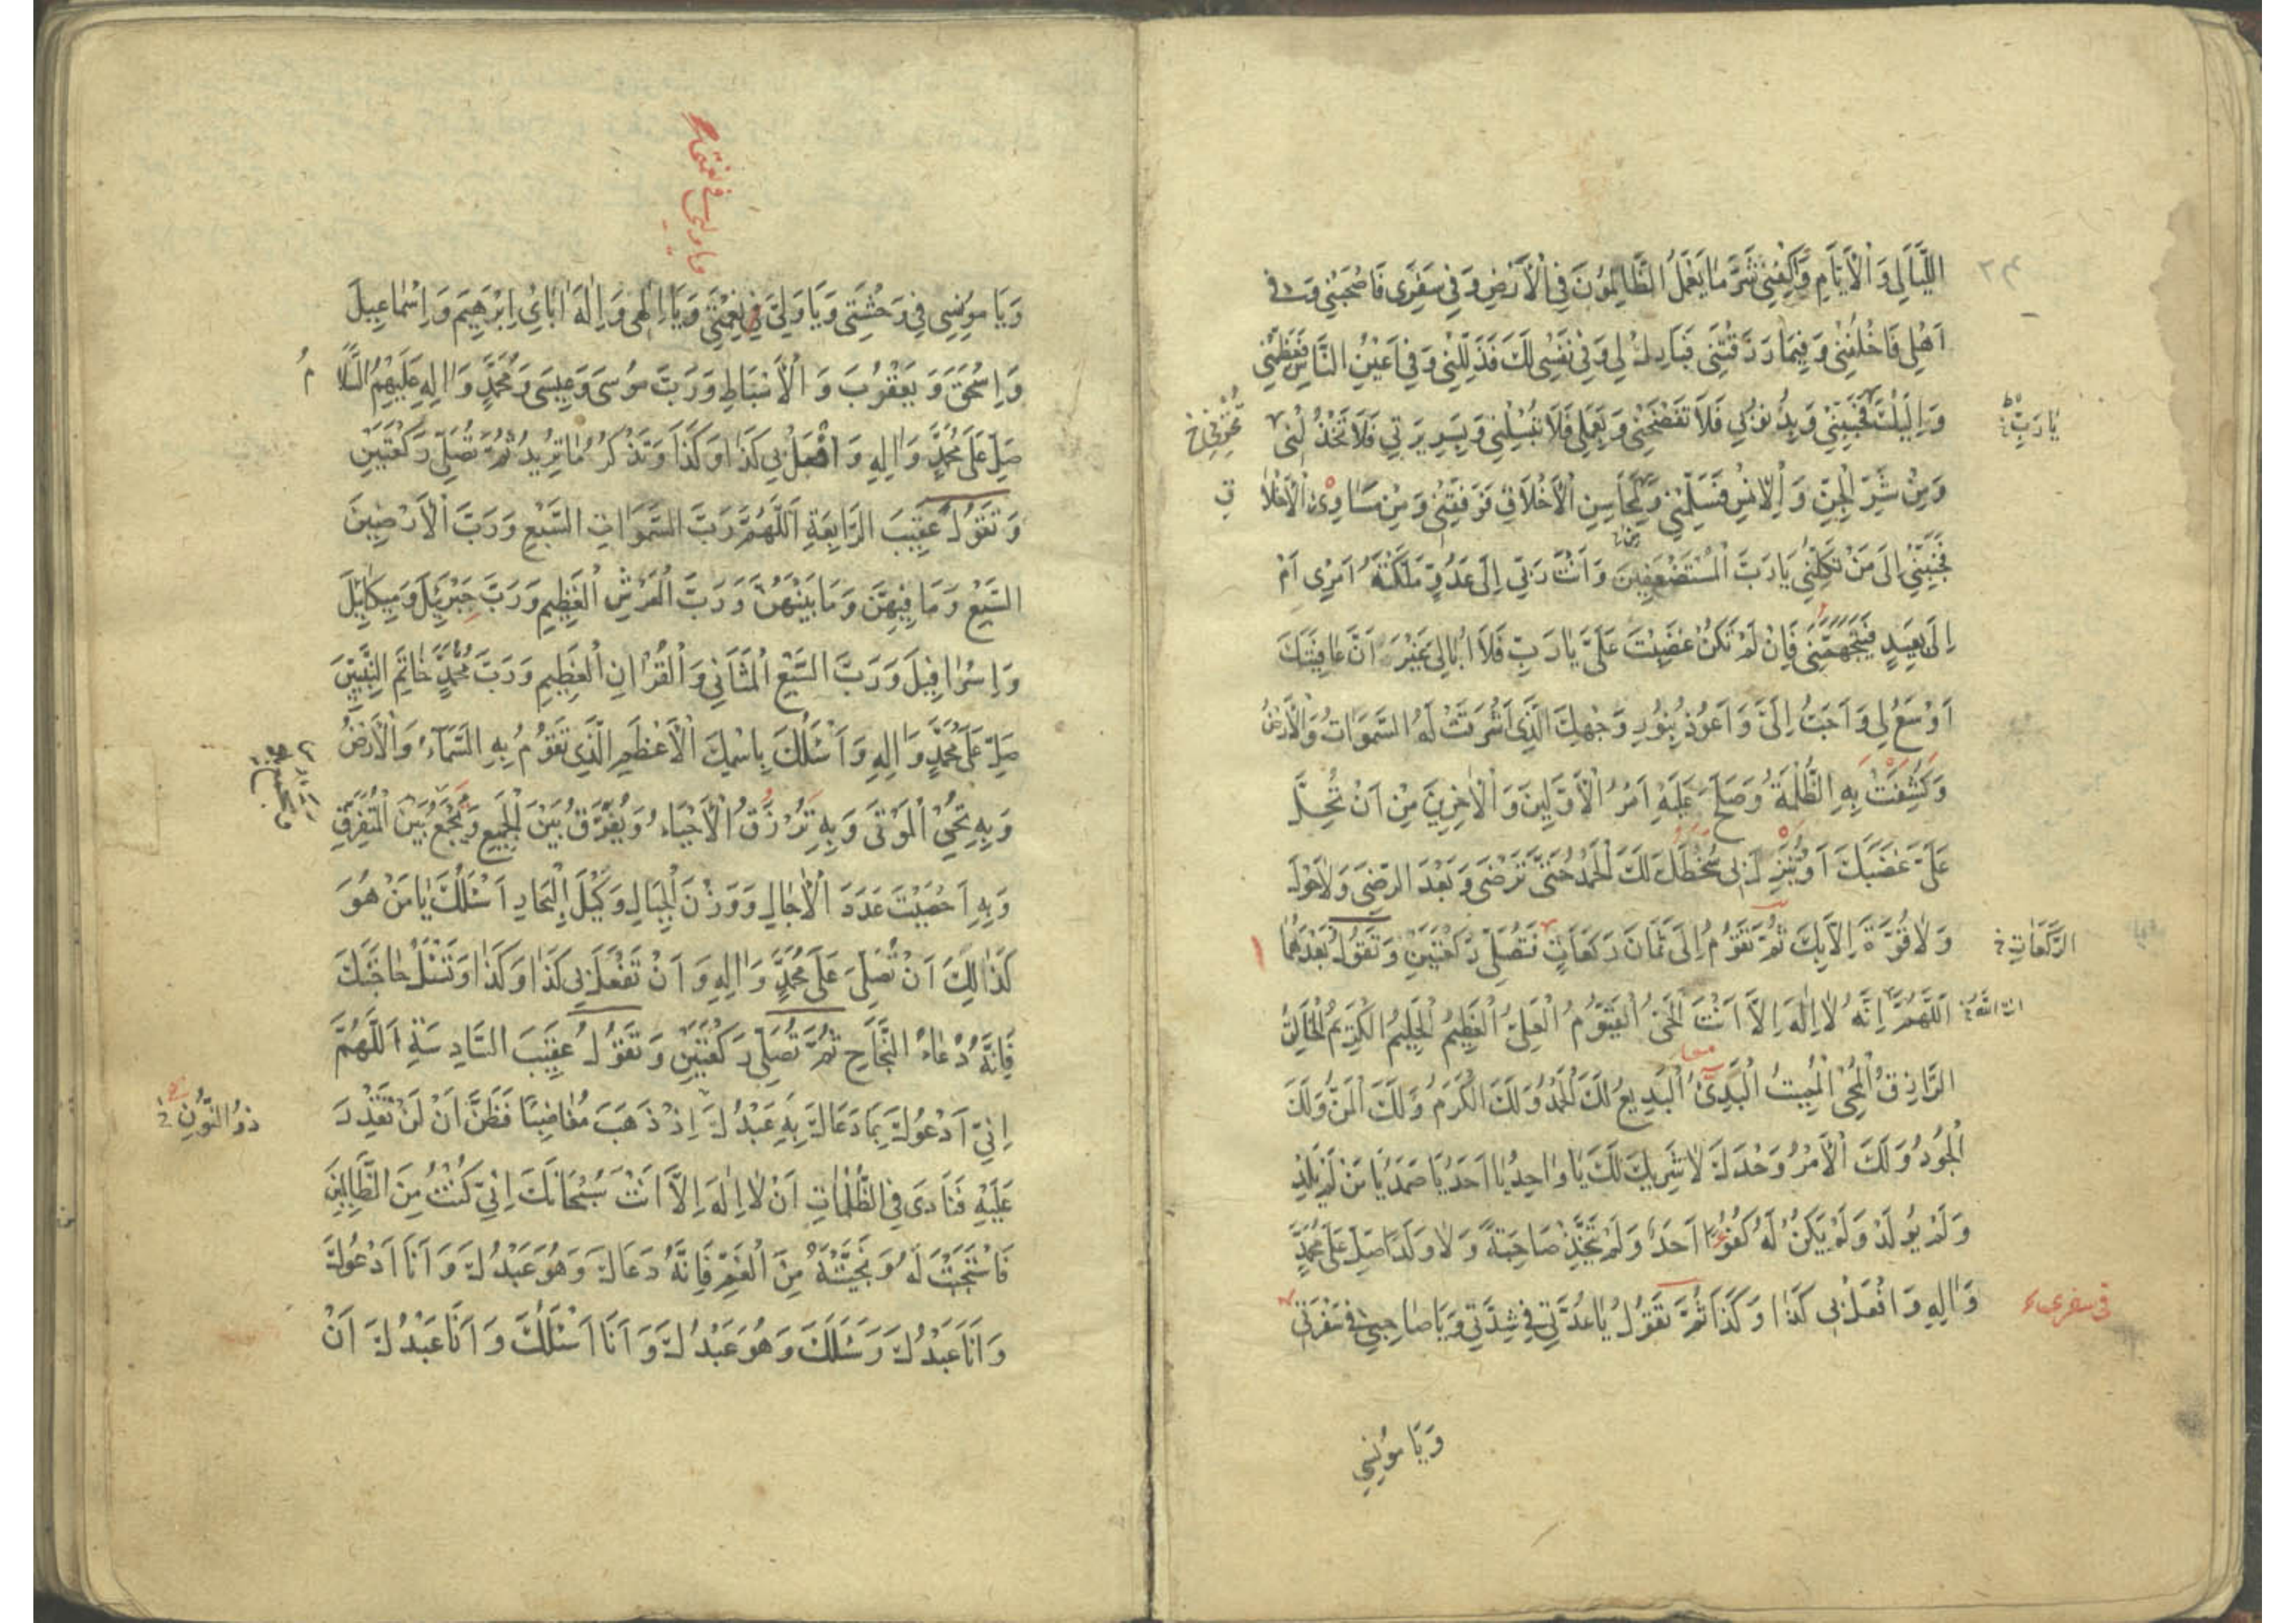 اللَّيَالِي وَالْأَيَّامِ وَاكْفِنِي شَرَّ مَا يَعْمَلُ الظَّالِمُونَ فِي الْأَرْضِ وَفِي سَفَرِي فَاصْحَبْنِي وَفِي
اَهْلِي فَاخْلُفْنِي وَفِيمَا رَزَقْتَنِي فَبَارِكْ لِي وَفِي نَفْسِي لَكَ فَذَلِّلْنِي وَفِي اَعْيُنِ النَّاسِ فَعَظِّمْنِي
وَاِلَيْكَ فَحَبِّبْنِي وَبِذُنُوبِي فَلَا تَفْضَحْنِي وَبِعَمَلِي فَلَا تُبْسِلْنِي وَبِسَرِيرَتِي فَلَا تَخْذُلْنِي
يَا رَبِّ
وَمِنْ شَرِّ الْجِنِّ وَالْاِنْسِ فَسَلِّمْنِي وَلِمَحَاسِنِ الْأَخْلَاقِ فَوَفِّقْنِي وَمِنْ مَسَاوِئِ الْأَخْلَاقِ
فَجَنِّبْنِي اِلَى مَنْ تَكِلُنِي يَا رَبَّ الْمُسْتَضْعَفِينَ وَاَنْتَ رَبِّي اِلَى عَدُوٍّ مَلَّكْتَهُ اَمْرِي اَمْ
اِلَى بَعِيدٍ فَيَتَجَهَّمَنِي فَاِنْ لَمْ تَكُنْ غَضِبْتَ عَلَيَّ يَا رَبِّ فَلَا اُبَالِي غَيْرَ اَنَّ عَافِيَتَكَ
اَوْسَعُ لِي وَاَحَبُّ اِلَيَّ وَاَعُوذُ بِنُورِ وَجْهِكَ الَّذِي اَشْرَقَتْ لَهُ السَّمَوَاتُ وَالْأَرْضُ
وَكُشِفَتْ بِهِ الظُّلْمَةُ وَصَلَحَ عَلَيْهِ اَمْرُ الْأَوَّلِينَ وَالْآخِرِينَ مِنْ اَنْ تُحِلَّ
عَلَيَّ غَضَبَكَ اَوْ تُنْزِلَ بِي سُخْطَكَ لَكَ الْحَمْدُ حَتَّى تَرْضَى وَبَعْدَ الرِّضَى وَلَا حَوْلَ
وَلَا قُوَّةَ اِلَّا بِكَ ثُمَّ تَقُومُ اِلَى ثَمَانَ رَكَعَاتٍ فَتُصَلِّي رَكْعَتَيْنِ وَتَقُولُ بَعْدَهُمَا
الرَّكَعَاتِ خ
اَللَّهُمَّ اِنَّهُ لَا اِلَهَ اِلَّا اَنْتَ الْحَيُّ الْقَيُّومُ الْعَلِيُّ الْعَظِيمُ الْحَلِيمُ الْكَرِيمُ الْخَالِقُ
الرَّازِقُ الْمُحْيِي الْمُمِيتُ الْبَدِيءُ الْبَدِيعُ لَكَ الْحَمْدُ وَلَكَ الْكَرَمُ وَلَكَ الْمَنُّ وَلَكَ
الْجُودُ وَلَكَ الْأَمْرُ وَحْدَكَ لَا شَرِيكَ لَكَ يَا وَاحِدُ يَا اَحَدُ يَا صَمَدُ يَا مَنْ لَمْ يَلِدْ
وَلَمْ يُولَدْ وَلَمْ يَكُنْ لَهُ كُفُوًا اَحَدٌ وَلَمْ يَتَّخِذْ صَاحِبَةً وَلَا وَلَدًا صَلِّ عَلَى مُحَمَّدٍ
وَآلِهِ وَافْعَلْ بِي كَذَا وَكَذَا ثُمَّ تَقُولُ يَا عُدَّتِي فِي شِدَّتِي وَيَا صَاحِبِي فِي سَفْرَتِي
وَيَا مُونِسِي
وَيَا مُونِسِي فِي وَحْشَتِي وَيَا وَلِيِّي فِي نِعْمَتِي وَيَا اِلَهِي وَاِلَهَ آبَائِي اِبْرَهِيمَ وَاِسْمَاعِيلَ
وَاِسْحَقَ وَيَعْقُوبَ وَالْأَسْبَاطِ وَرَبَّ مُوسَى وَعِيسَى وَمُحَمَّدٍ وَآلِهِ عَلَيْهِمُ السَّلَامُ
صَلِّ عَلَى مُحَمَّدٍ وَآلِهِ وَافْعَلْ بِي كَذَا وَكَذَا وَتَذْكُرُ مَا تُرِيدُ ثُمَّ تُصَلِّي رَكْعَتَيْنِ
وَتَقُولُ عَقِيبَ الرَّابِعَةِ اَللَّهُمَّ رَبَّ السَّمَوَاتِ السَّبْعِ وَرَبَّ الْأَرَضِينَ
السَّبْعِ وَمَا فِيهِنَّ وَمَا بَيْنَهُنَّ وَرَبَّ الْعَرْشِ الْعَظِيمِ وَرَبَّ جَبْرَئِيلَ وَمِيكَائِيلَ
وَاِسْرَافِيلَ وَرَبَّ السَّبْعِ الْمَثَانِي وَالْقُرْآنِ الْعَظِيمِ وَرَبَّ مُحَمَّدٍ خَاتَمِ النَّبِيِّينَ
صَلِّ عَلَى مُحَمَّدٍ وَآلِهِ وَاَسْئَلُكَ بِاسْمِكَ الْأَعْظَمِ الَّذِي تَقُومُ بِهِ السَّمَاءُ وَالْأَرْضُ
وَبِهِ تُحْيِي الْمَوْتَى وَبِهِ تَرْزُقُ الْأَحْيَاءَ وَيُفَرَّقُ بَيْنَ الْجَمِيعِ وَيُجْمَعُ بَيْنَ الْمُتَفَرِّقِ
وَبِهِ اَحْصَيْتَ عَدَدَ الْآجَالِ وَوَزْنَ الْجِبَالِ وَكَيْلَ الْبِحَارِ اَسْئَلُكَ يَا مَنْ هُوَ
كَذَلِكَ اَنْ تُصَلِّيَ عَلَى مُحَمَّدٍ وَآلِهِ وَاَنْ تَفْعَلَ بِي كَذَا وَكَذَا وَتَسْئَلُ حَاجَتَكَ
فَاِنَّهُ دُعَاءُ النَّجَاحِ ثُمَّ تُصَلِّي رَكْعَتَيْنِ وَتَقُولُ عَقِيبَ السَّادِسَةِ اَللَّهُمَّ
اِنِّي اَدْعُوكَ بِمَا دَعَاكَ بِهِ عَبْدُكَ اِذْ ذَهَبَ مُغَاضِبًا فَظَنَّ اَنْ لَنْ تَقْدِرَ
ذُو النُّونِ خ
عَلَيْهِ فَنَادَى فِي الظُّلُمَاتِ اَنْ لَا اِلَهَ اِلَّا اَنْتَ سُبْحَانَكَ اِنِّي كُنْتُ مِنَ الظَّالِمِينَ
فَاسْتَجَبْتَ لَهُ وَنَجَّيْتَهُ مِنَ الْغَمِّ فَاِنَّهُ دَعَاكَ وَهُوَ عَبْدُكَ وَاَنَا اَدْعُوكَ
وَاَنَا عَبْدُكَ وَسَئَلَكَ وَهُوَ عَبْدُكَ وَاَنَا اَسْئَلُكَ وَاَنَا عَبْدُكَ اَنْ